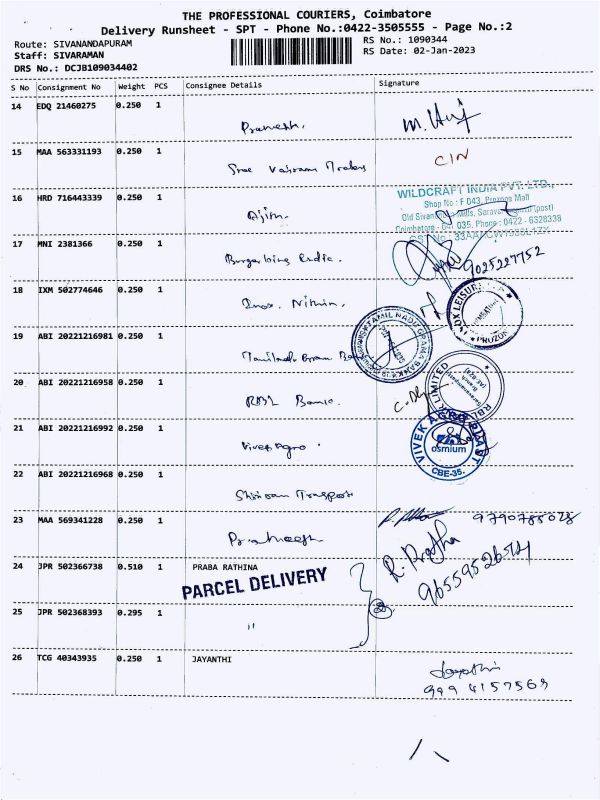 THE PROFESSIONAL COURIERS, Coimbatore
Delivery Runsheet - SPT - Phone No.:0422-3505555 - Page No.:2
Route: SIVANANDAPURAM
RS No.: 1090344
Staff: SIVARAMAN
RS Date: 02-Jan-2023
DRS No.: DCJB109034402
S No Consignment No Weight PCS Consignee Details Signature
14 EDQ 21460275 0.250 1
Pranesh.
15 MAA 563331193 0.250 1
Sree Traders
CIN
16 HRD 716443339 0.250 1
WILDCRAFT INDIA PVT. LTD.,
Shop No : F 043, Prozone Mall
Old Sivan Mills,
Coimbatore - 641 035. Phone : 0422 - 6328338
17 MNI 2381366 0.250 1
9025227752
18 IXM 502774646 0.250 1
Inox. Nithin.
PROZON
19 ABI 20221216981 0.250 1
TAMIL NADU GRAMA BANK
20 ABI 20221216958 0.250 1
RBL Bank.
RBL LIMITED
21 ABI 20221216992 0.250 1
Vivek Agro.
VIVEK AGRO
osmium
CBE-35.
22 ABI 20221216968 0.250 1
Shriram Transport
23 MAA 569341228 0.250 1
24 JPR 502366738 0.510 1 PRABA RATHINA
PARCEL DELIVERY
25 JPR 502368393 0.295 1
"
26 TCG 40343935 0.250 1 JAYANTHI
Jayanthi
999 4157569